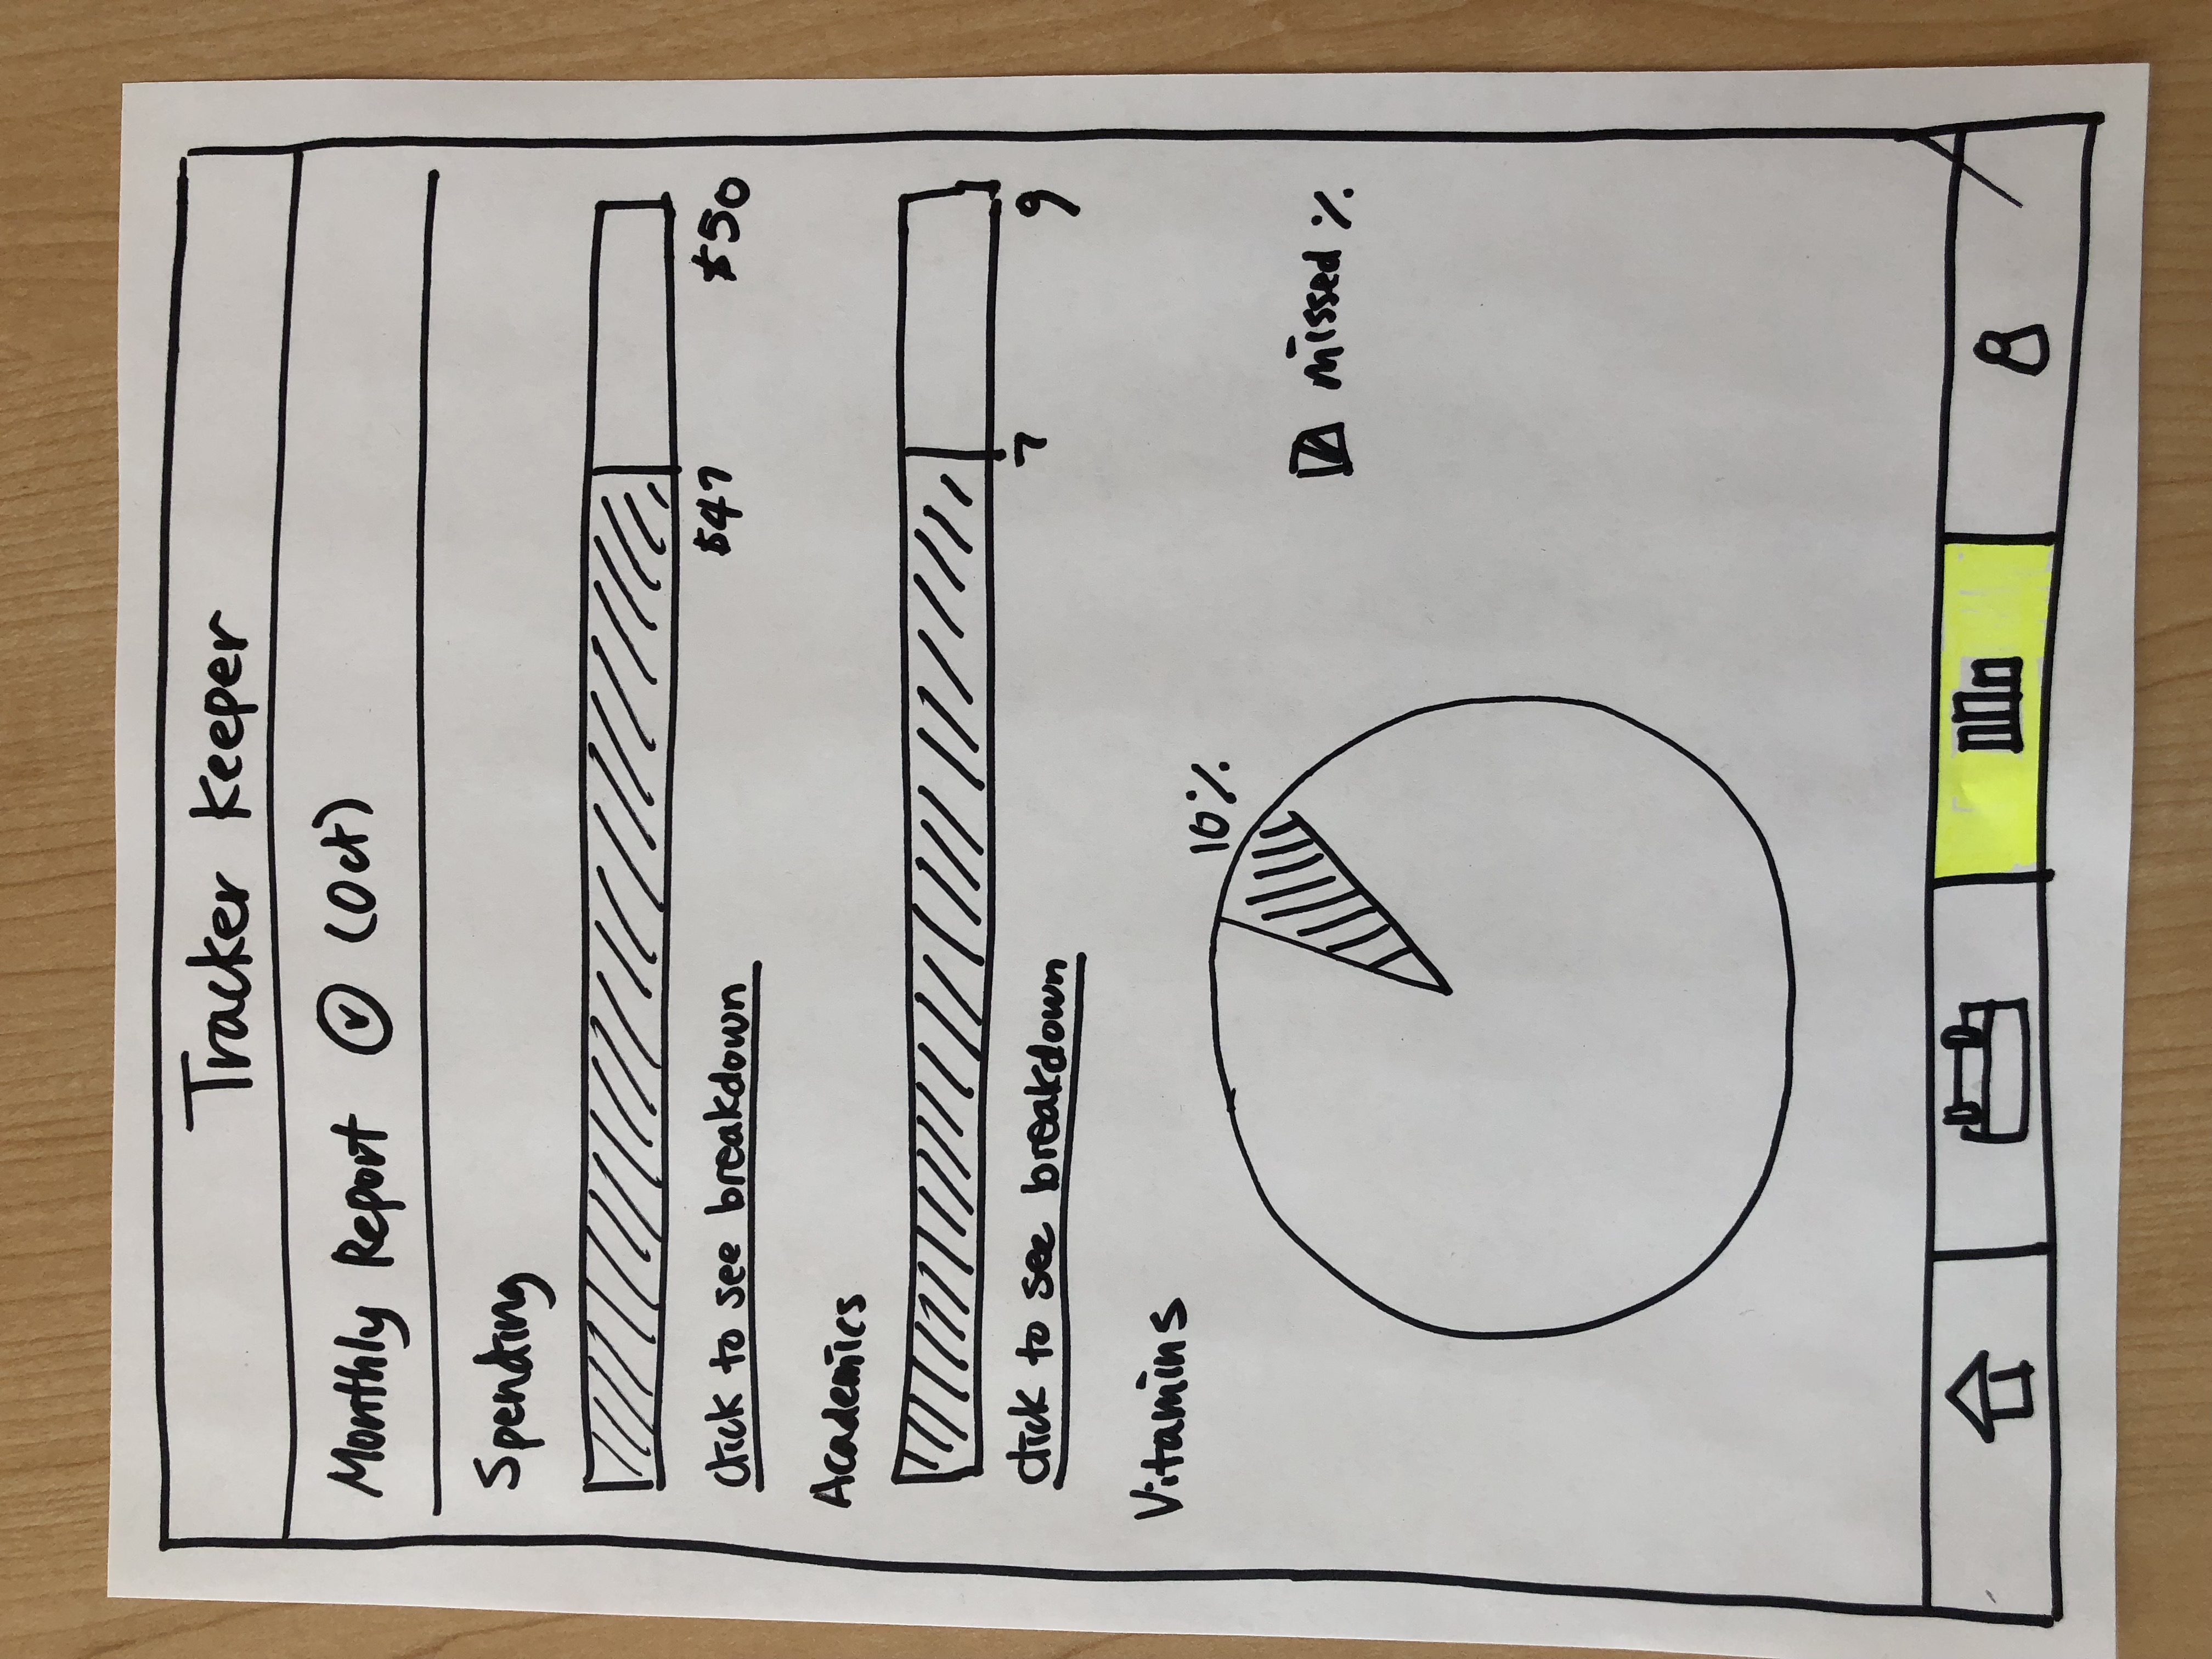 Tracker Keeper
Monthly Report (Oct)
Spending
$47 $50
click to see breakdown
Academics
7 9
click to see breakdown
Vitamins
10%
missed %